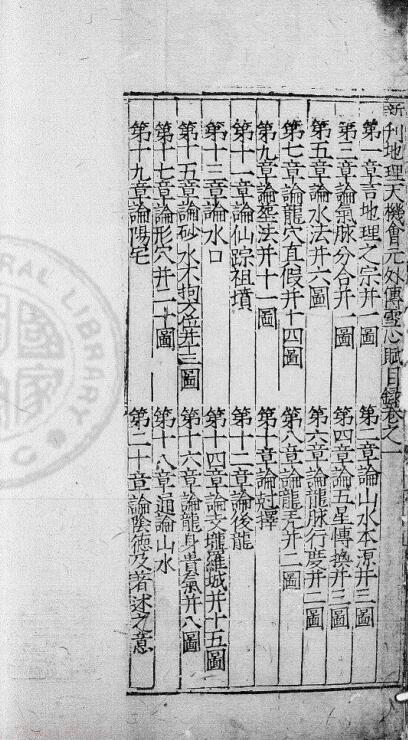 新刊地理天機會元外傳雪心賦目錄卷之一
第一章言地理之宗并一圖 第二章論山水本源并三圖
第三章論氣脉分合并一圖 第四章論五星傳換并三圖
第五章論水法并六圖 第六章論龍脉行度并二圖
第七章論龍穴真假并十四圖 第八章論龍虎并二圖
第九章論塟法并十一圖 第十章論尅擇
第十一章論仙踪祖墳 第十二章論後龍
第十三章論水口 第十四章論文壠羅城并十五圖
第十五章論砂水不拘方位并三圖 第十六章論龍身貴氣并八圖
第十七章論形穴并二十圖 第十八章通論山水
第十九章論陽宅 第二十章論陰德及著述之意
RAL LIBRARY